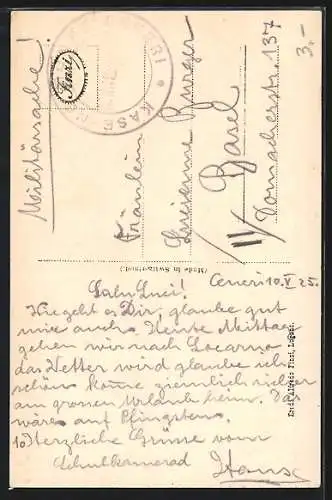 Militärsache!
Finzi
KASE
Fräulein
Burger
Basel
11/ Dornacherstr. 137
3.-
(Made in Switzerland.)
Ceneri 10. V 25.
Salu Luci!
Wie geht es Dir, glaube gut
mir auch. Heute Mittag
gehen wir nach Locarno
das Wetter wird glaube ich
schön. Komme ziemlich sicher
am grossen Urlaub heim. Das
wäre auf Pfingsten.
Herzliche Grüsse vom
Schulkamerad Hans
Eredi Alfredo Finzi, Lugano.